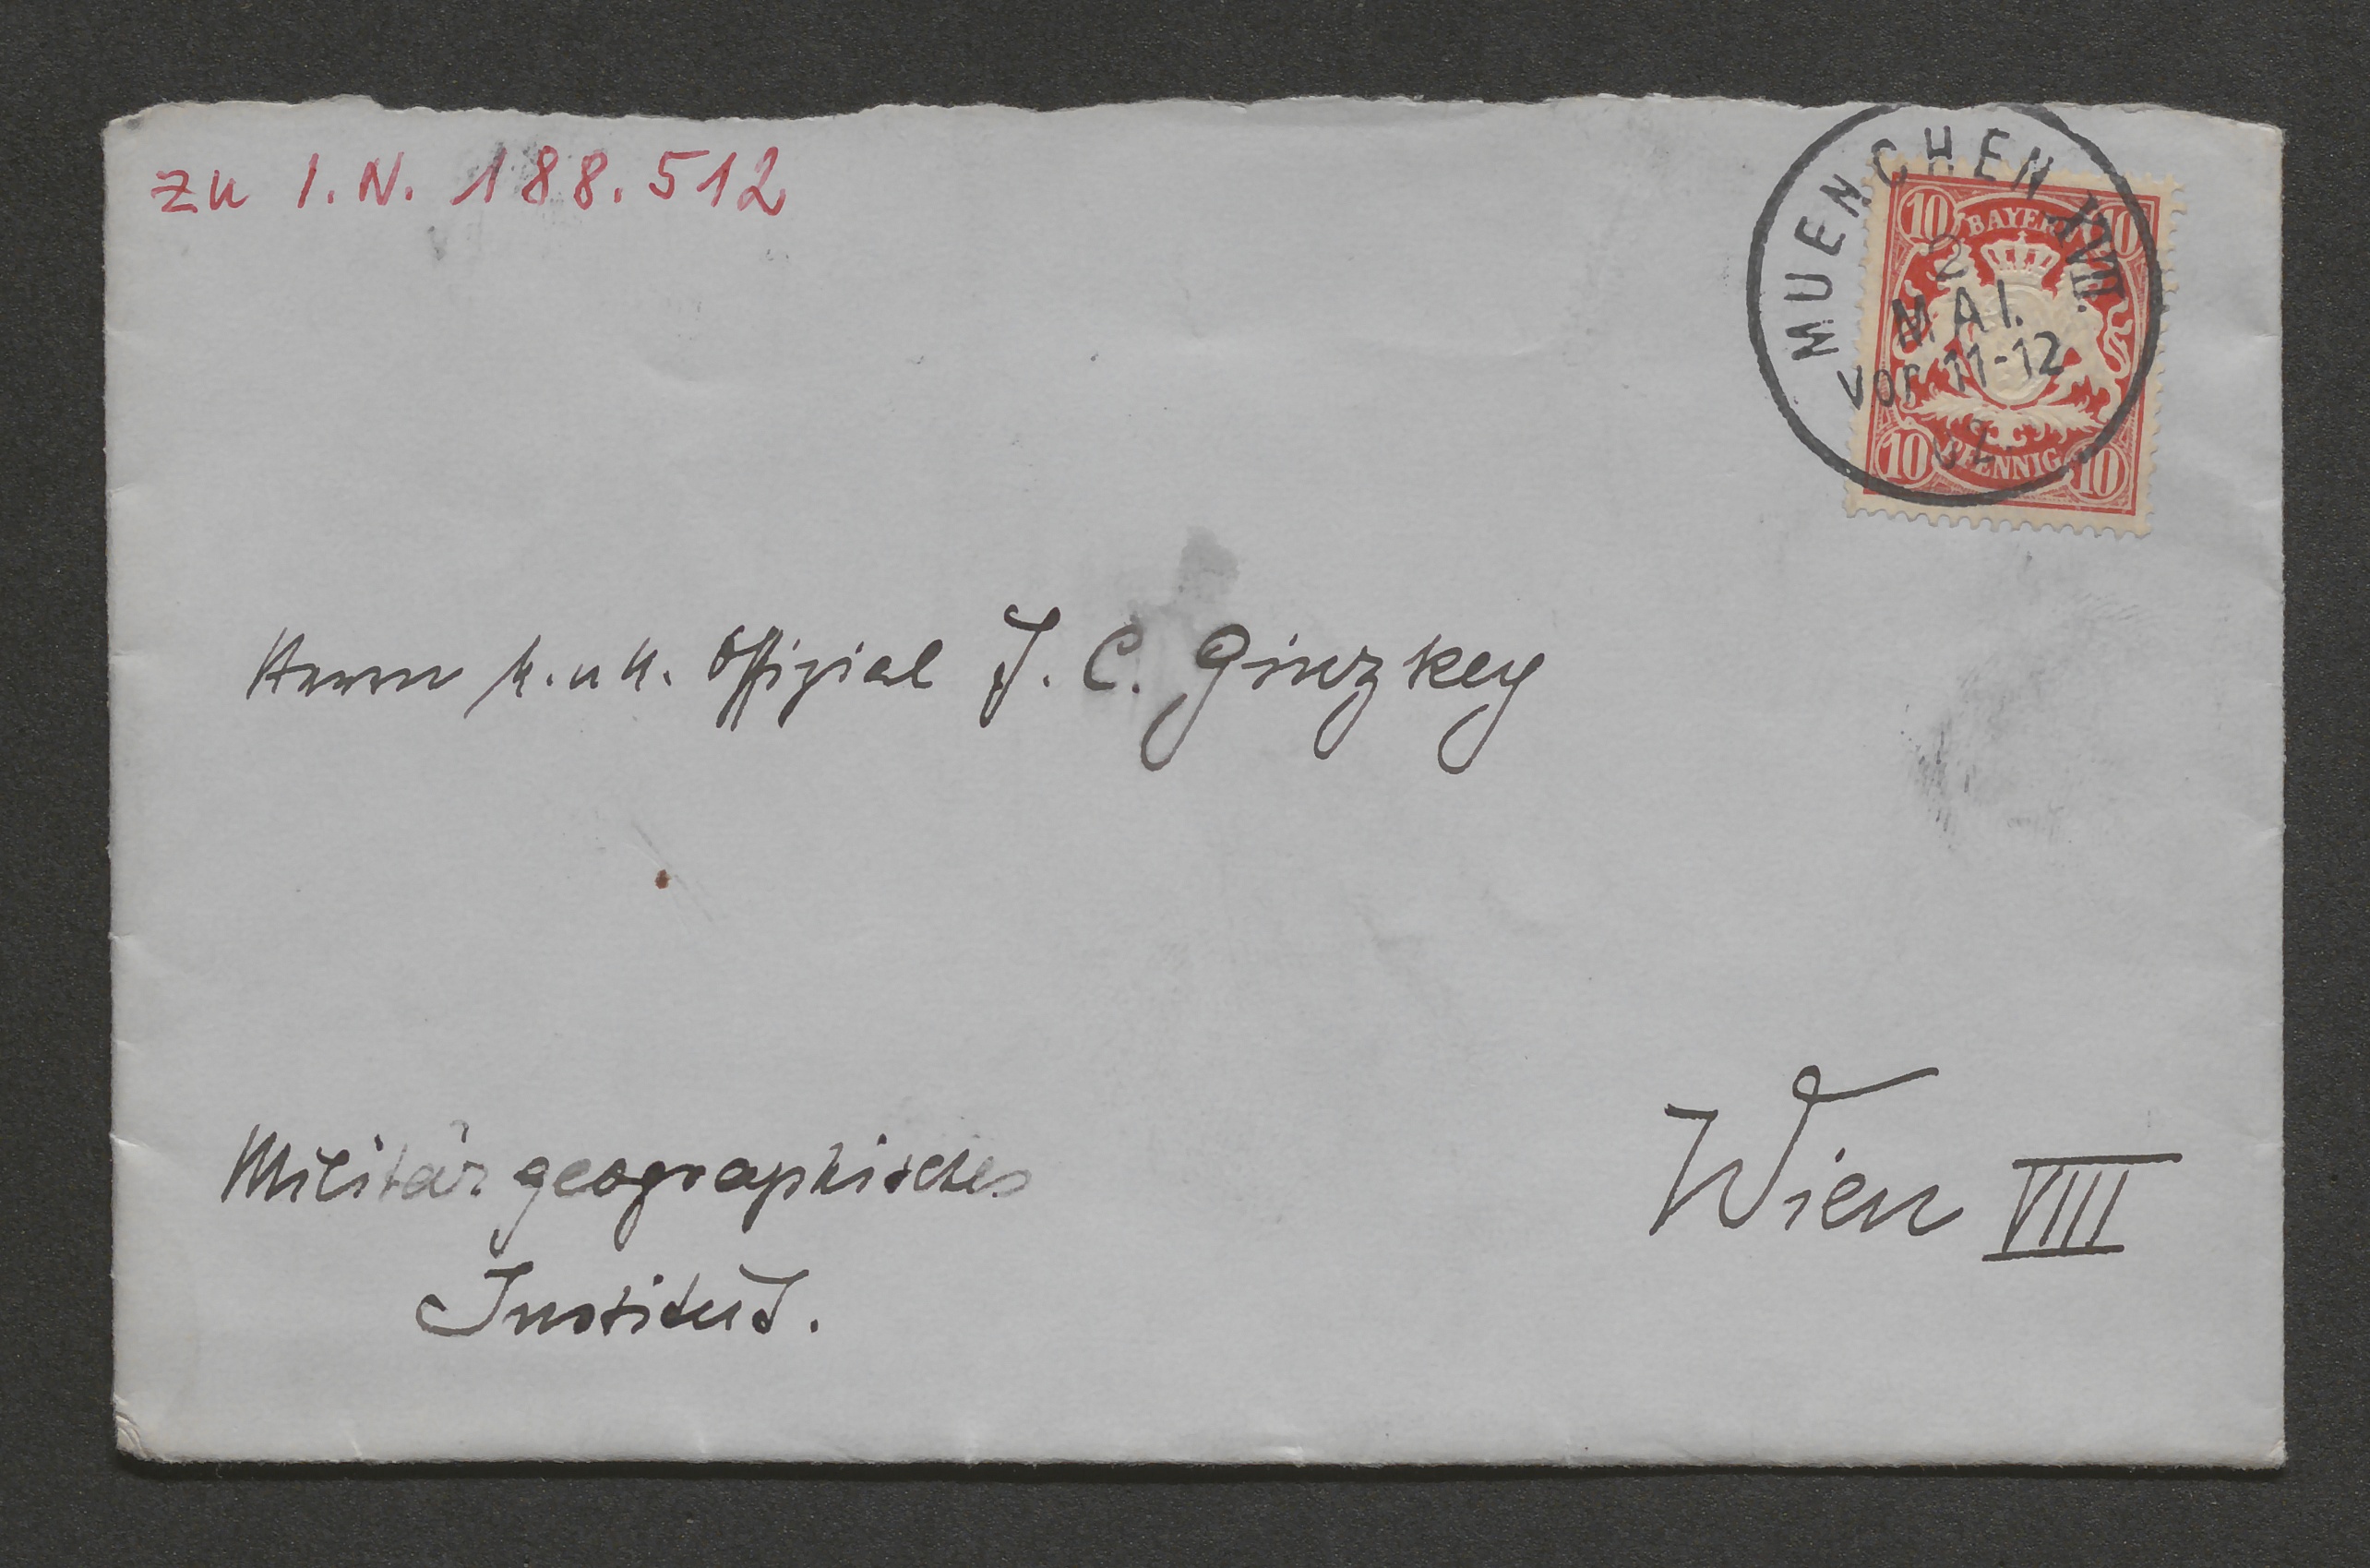 zu I.N. 188.512
MUENCHEN XVIII.
2
MAI.
VOR 11-12
02.
10 BAYERN 10
10 PFENNIG 10
Herrn k. u k. Offizial F. C. Ginzkey
Militär geographisches
Institut.
Wien VIII